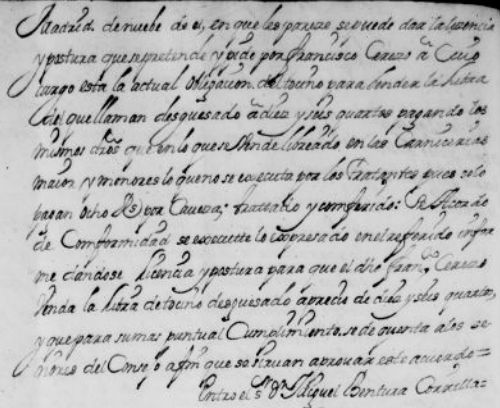 Madrid de nuebe de el, en que les pareze se puede dar la lizencia
y postura que se pretende y pide por francisco Cerezo â Cuio
cargo està la actual obligazion del tocino para bender la libra
del que llaman desguesado â diez y seis quartos pagando los
mismos dros que en lo que se vende libreado en las Carnicerias
maior y menores lo que no se executa por los Tratantes pues solo
pagan ocho Rs por Caveza; trattado y comferido: Se Acordo
de Comformidad se execute lo expresado en el referido infor
me dandose lizencia y postura para que el dho Franco Cerezo
venda la libra de tocino desguesado a precio de diez y seis quartos,
y que para su mas puntual Cumplimiento, se de quenta a los se
ñores del Consejo afin que se sirvan aprovar este acuerdo=
Entro el sr Dn Miguel Bentura Zorrilla=